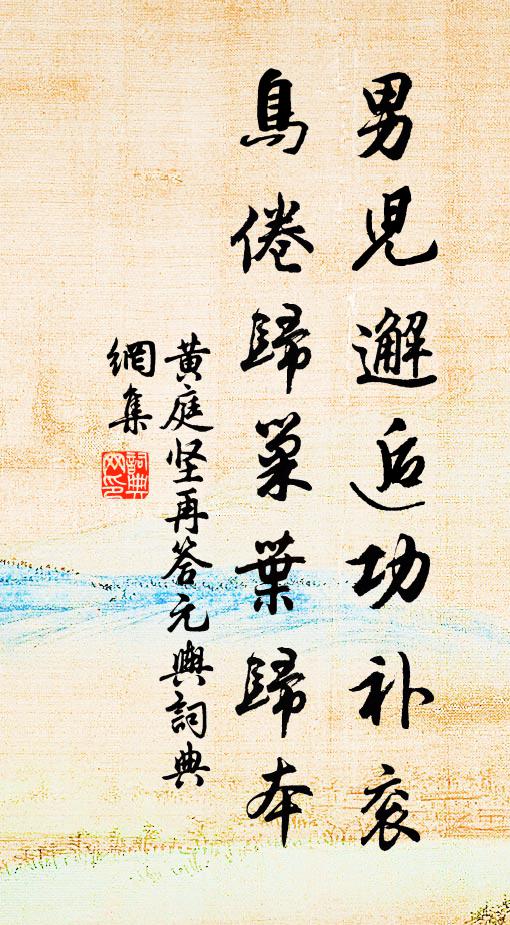 男兒邂逅功补衮
鳥倦歸巢葉歸本
黄庭坚再答元輿詞典
網集
詞典网印